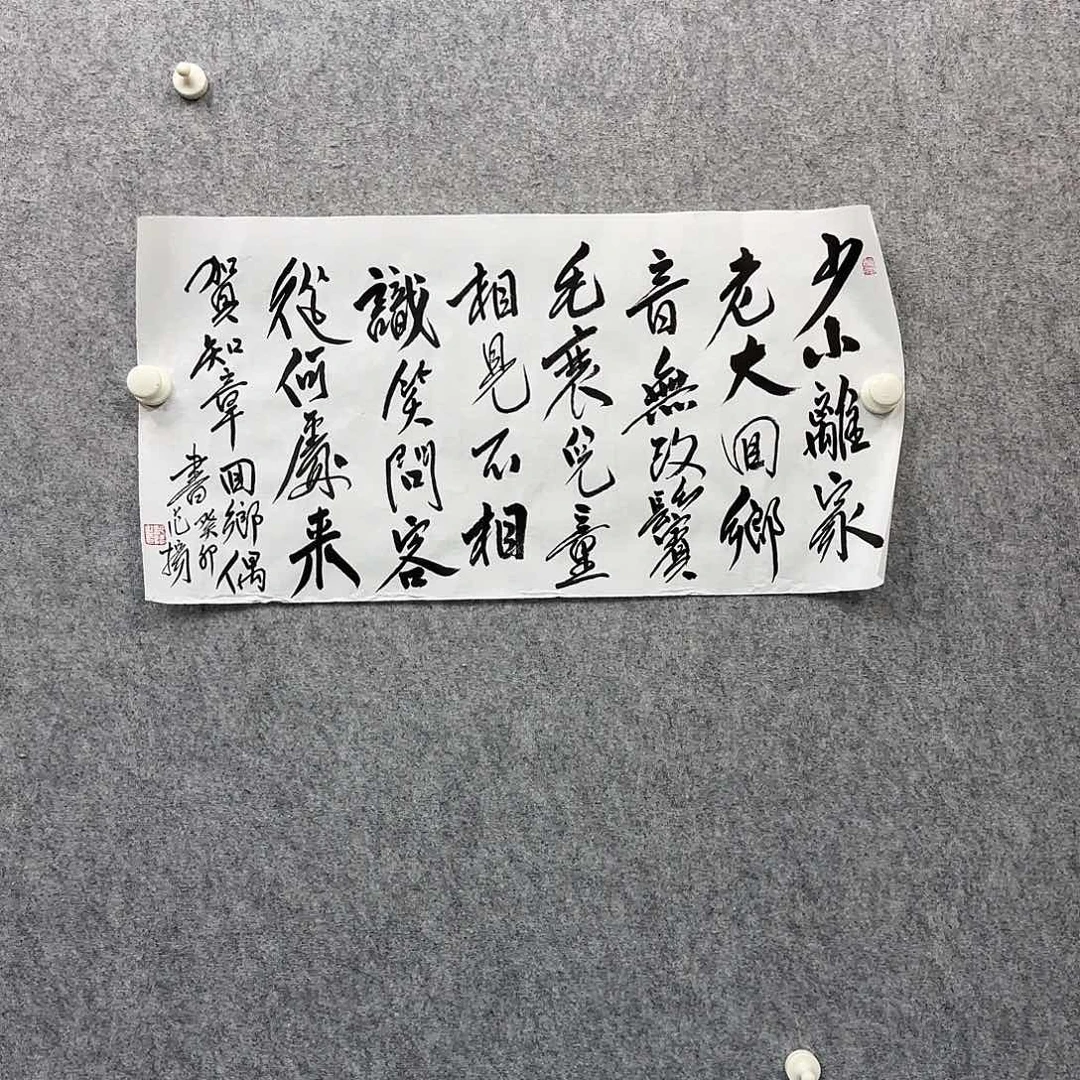 少小離家
老大回鄉
音無改鬢
毛衰兒童
相見不相
識笑問客
從何處来
賀知章回鄉偶
書癸卯
范揚